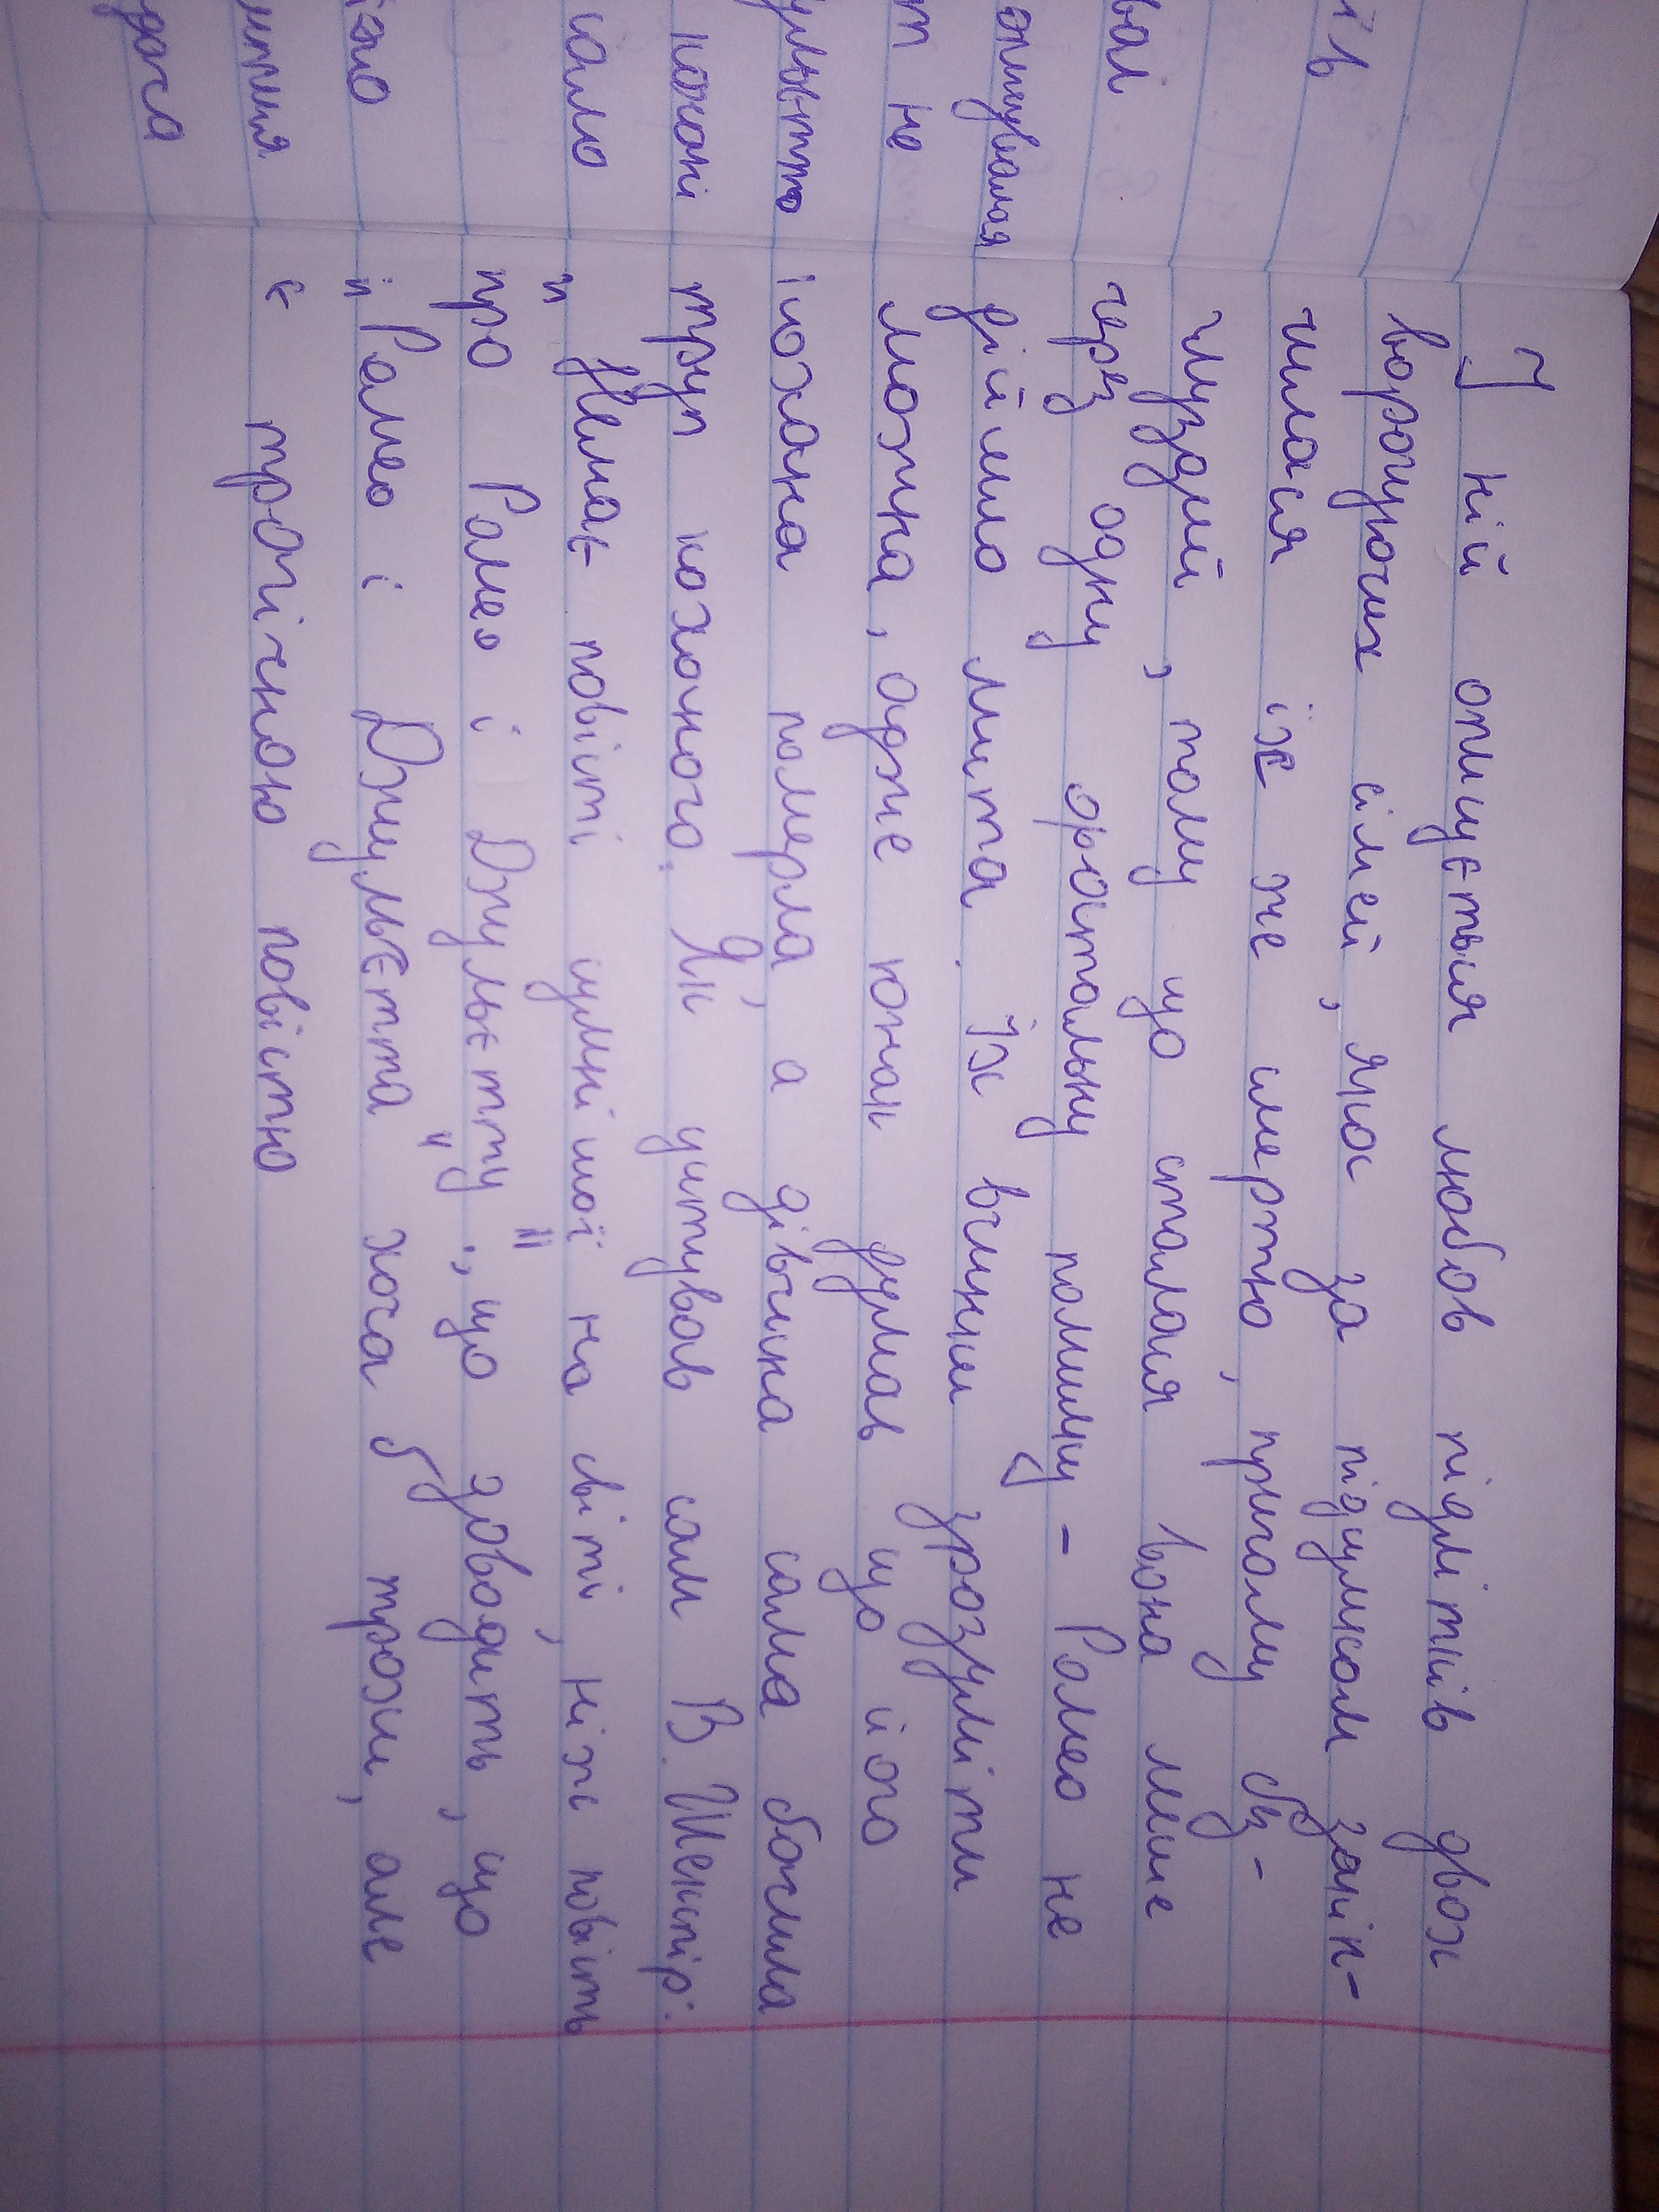 вал
не
кохані
дася
У ній описується любов підлітків двох
ворогуючих сімей, яка за підсумком закін-
чилася їх же смертю, причому буз-
глуздий, тому що сталася вона лише
через одну фатальну помилку - Ромео не
дійшло листа. Їх вчинки зрозуміти
можна, адже юнак думав що його
кохана померла, а дівчина сама бачила
труп коханого. Як цитував сам В. Шекспір:
"Немає повісті сумнішої на світі, ніж повість
про Ромео і Джульєтту", що доводить, що
"Ромео і Джульєтта" хоча б трохи, але
є трагічною повістю